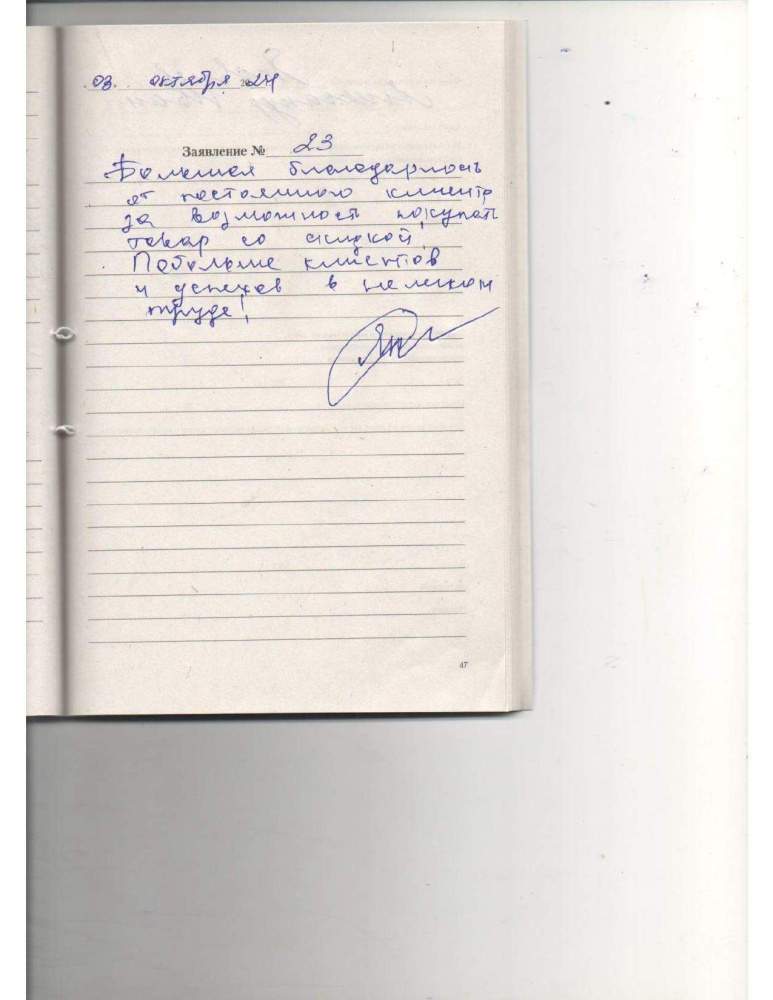 03. октября 2024
Заявление № 23
Большая благодарность
от постоянного клиента
за возможность покупать
товар со скидкой.
Побольше клиентов
и успехов в нелегком
труде!
47